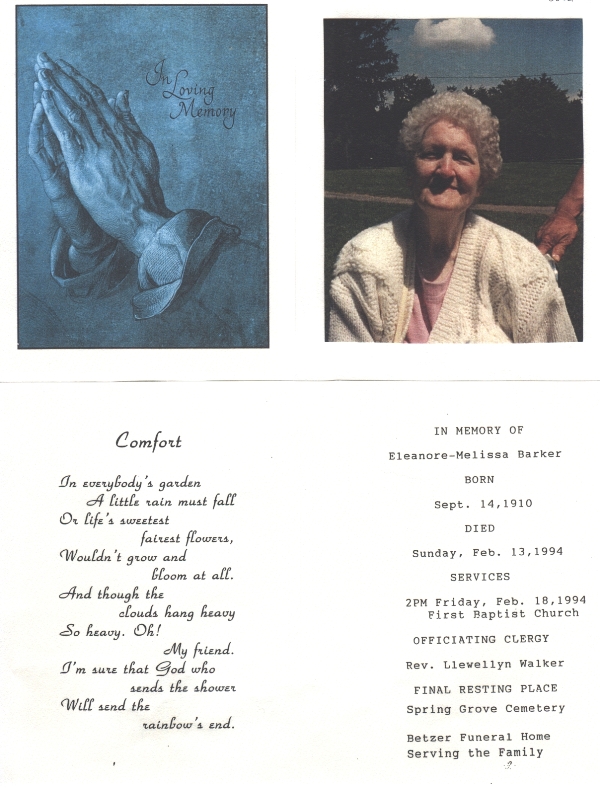 In
Loving
Memory
Comfort
In everybody's garden
A little rain must fall
Or life's sweetest
fairest flowers,
Wouldn't grow and
bloom at all.
And though the
clouds hang heavy
So heavy. Oh!
My friend.
I'm sure that God who
sends the shower
Will send the
rainbow's end.
IN MEMORY OF
Eleanore-Melissa Barker
BORN
Sept. 14,1910
DIED
Sunday, Feb. 13,1994
SERVICES
2PM Friday, Feb. 18,1994
First Baptist Church
OFFICIATING CLERGY
Rev. Llewellyn Walker
FINAL RESTING PLACE
Spring Grove Cemetery
Betzer Funeral Home
Serving the Family